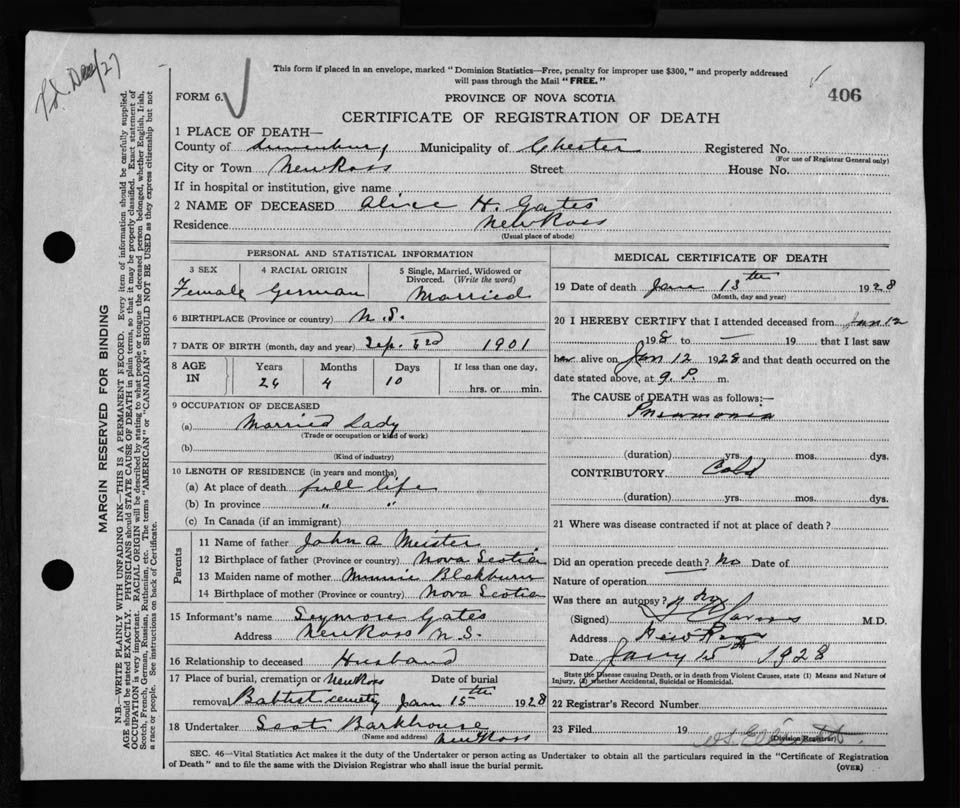 Dec/27
This form if placed in an envelope, marked "Dominion Statistics—Free, penalty for improper use $300," and properly addressed
will pass through the Mail "FREE."
FORM 6.
PROVINCE OF NOVA SCOTIA
406
CERTIFICATE OF REGISTRATION OF DEATH
1 PLACE OF DEATH—
County of Lunenburg Municipality of Chester Registered No.
(For use of Registrar General only)
City or Town New Ross Street House No.
If in hospital or institution, give name
2 NAME OF DECEASED Alice H. Gates
Residence New Ross
(Usual place of abode)
PERSONAL AND STATISTICAL INFORMATION
3 SEX 4 RACIAL ORIGIN 5 Single, Married, Widowed or
Divorced. (Write the word)
Female German Married
6 BIRTHPLACE (Province or country) N.S.
7 DATE OF BIRTH (month, day and year) Sep. 3rd 1901
8 AGE IN Years Months Days If less than one day,
26 4 10 hrs. or min.
9 OCCUPATION OF DECEASED
(a) Married Lady
(Trade or occupation or kind of work)
(b)
(Kind of industry)
10 LENGTH OF RESIDENCE (in years and months)
(a) At place of death full life
(b) In province " "
(c) In Canada (if an immigrant)
Parents
11 Name of father John A Meister
12 Birthplace of father (Province or country) Nova Scotia
13 Maiden name of mother Minnie Blakburn
14 Birthplace of mother (Province or country) Nova Scotia
15 Informant's name Seymore Gates
Address New Ross N.S.
16 Relationship to deceased Husband
17 Place of burial, cremation or New Ross Date of burial
removal Babtist cemety Jan 15th 1928
18 Undertaker Scot Barkhouse
(Name and address) New Ross
MEDICAL CERTIFICATE OF DEATH
19 Date of death Jan 13th 1928
(Month, day and year)
20 I HEREBY CERTIFY that I attended deceased from Jan 12
1928 to — 19 that I last saw
her alive on Jan 12 1928 and that death occurred on the
date stated above, at 9 P. m.
The CAUSE of DEATH was as follows:—
Pneumonia
(duration) yrs. mos. dys.
CONTRIBUTORY Cold
(duration) yrs. mos. dys.
21 Where was disease contracted if not at place of death?
Did an operation precede death? no Date of
Nature of operation
Was there an autopsy? no
(Signed) M.D.
Address New Ross
Date Jany 15th 1928
State the Disease causing Death, or in death from Violent Causes, state (1) Means and Nature of
Injury, (2) whether Accidental, Suicidal or Homicidal.
22 Registrar's Record Number
23 Filed 19
(Division Registrar)
SEC. 46—Vital Statistics Act makes it the duty of the Undertaker or person acting as Undertaker to obtain all the particulars required in the "Certificate of Registration
of Death" and to file the same with the Division Registrar who shall issue the burial permit.
(OVER)
MARGIN RESERVED FOR BINDING
N.B.—WRITE PLAINLY WITH UNFADING INK—THIS IS A PERMANENT RECORD. Every item of information should be carefully supplied.
AGE should be stated EXACTLY. PHYSICIANS should STATE CAUSE OF DEATH in plain terms, so that it may be properly classified. Exact statement of
OCCUPATION is very important. RACIAL ORIGIN will be described by stating to what people or tongue the deceased person belonged, whether English, Irish,
Scotch, French, German, Russian, Ruthenian, etc. The terms "AMERICAN" or "CANADIAN" SHOULD NOT BE USED as they express citizenship but not
a race or people. See instructions on back of Certificate.